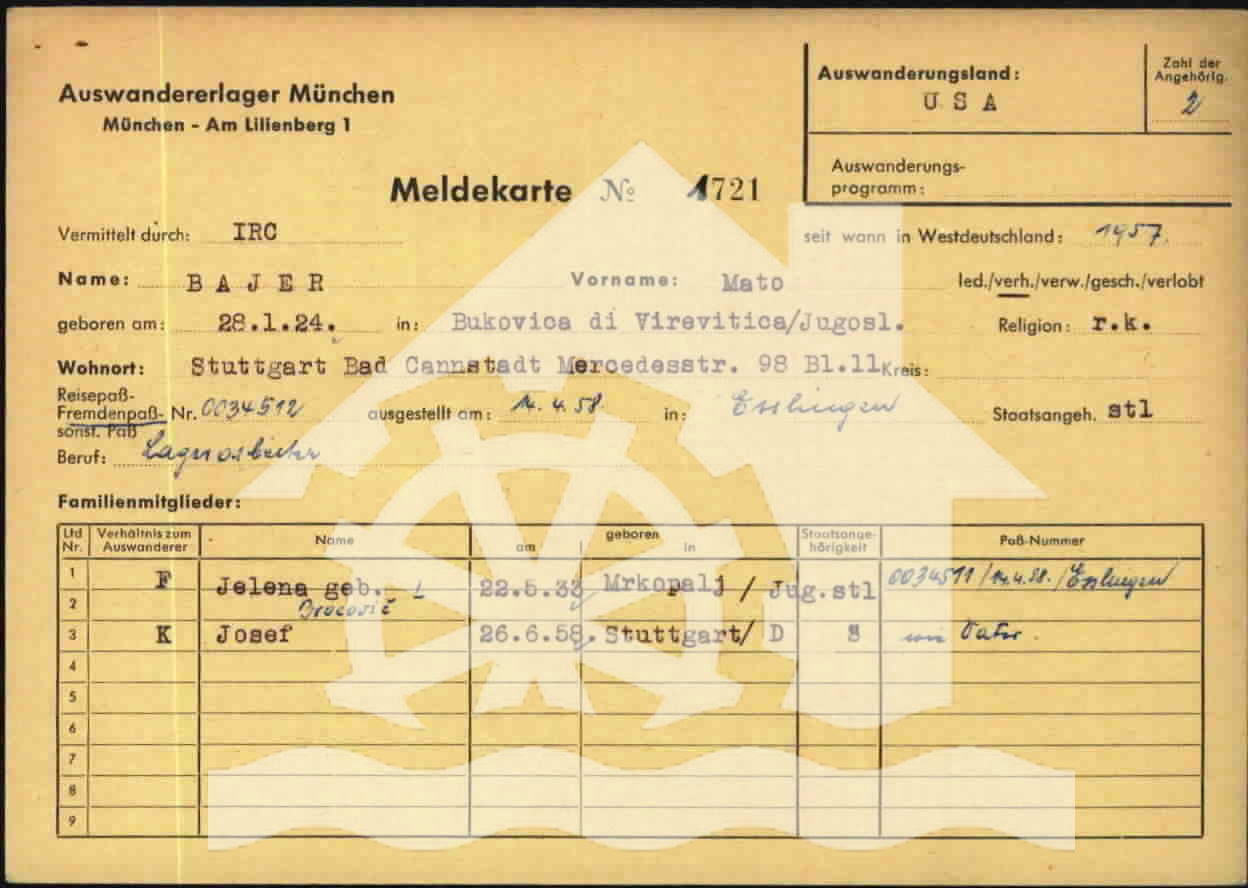 Auswandererlager München
München - Am Lilienberg 1
Auswanderungsland:
U S A
Zahl der
Angehörig.
2
Auswanderungs-
programm:
Meldekarte № 1721
Vermittelt durch: IRC seit wann in Westdeutschland: 1957.
Name: B A J E R Vorname: Mato led./verh./verw./gesch./verlobt
geboren am: 28.1.24. in: Bukovica di Virevitica/Jugosl. Religion: r.k.
Wohnort: Stuttgart Bad Cannstadt Mercedesstr. 98 Bl.11 Kreis:
Reisepaß-
Fremdenpaß- Nr. 0034512 ausgestellt am: 14.4.58. in: Esslingen Staatsangeh. stl
sonst. Paß
Beruf:
Familienmitglieder:
Lfd Nr. Verhältnis zum Auswanderer Name geboren am in Staatsange-hörigkeit Paß-Nummer
1 F Jelena geb. 22.5.33 Mrkopalj / Jug.stl 0034511/14.4.58./Esslingen
2
3 K Josef 26.6.58. Stuttgart/ D S wie Vater.
4
5
6
7
8
9